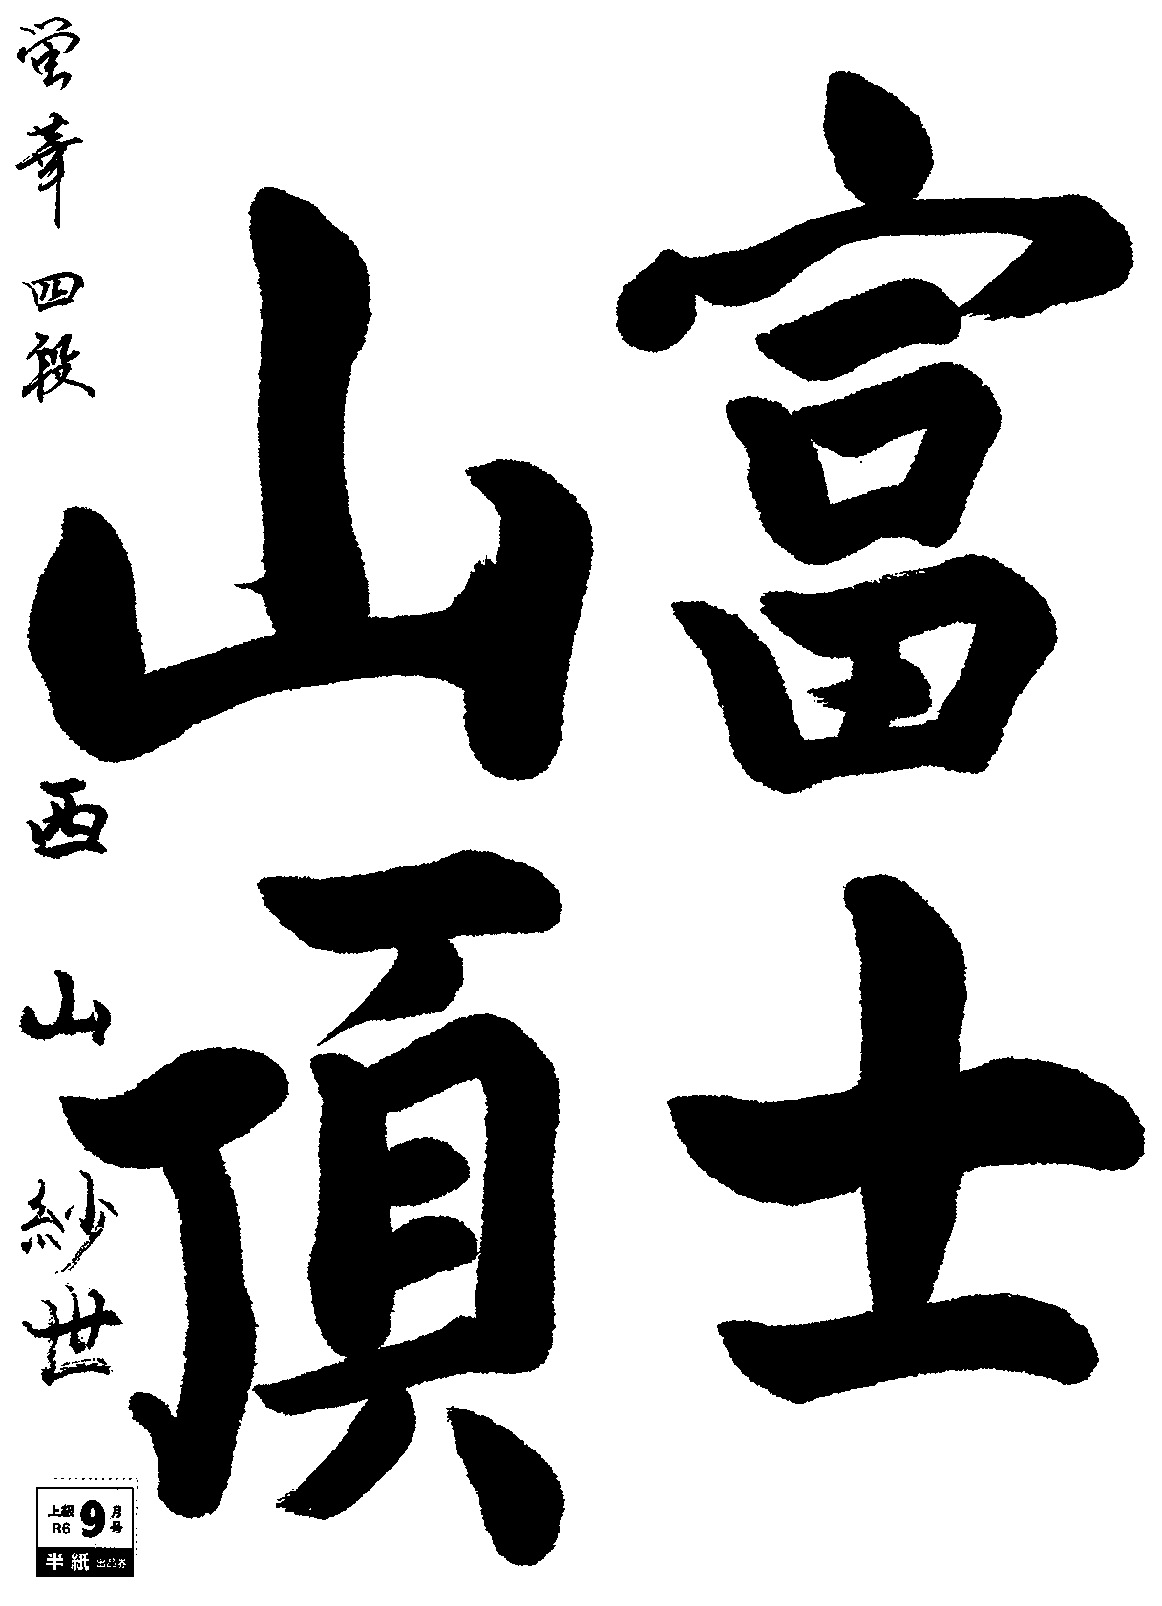 富士
山頂
蛍華 四段 西山紗世
上級 R6 9月号
半紙 出品券